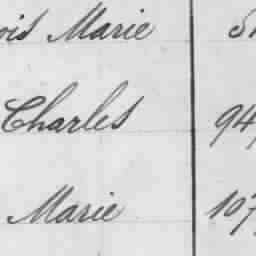 ois Marie
Charles 94
Marie 107